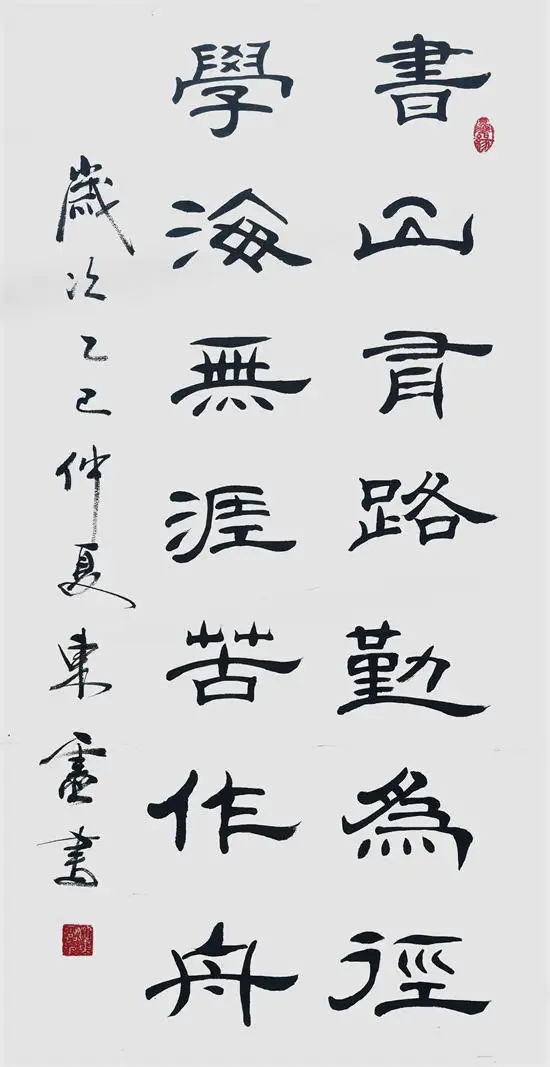 書山有路勤為徑
學海無涯苦作舟
歲次乙巳仲夏東靈書